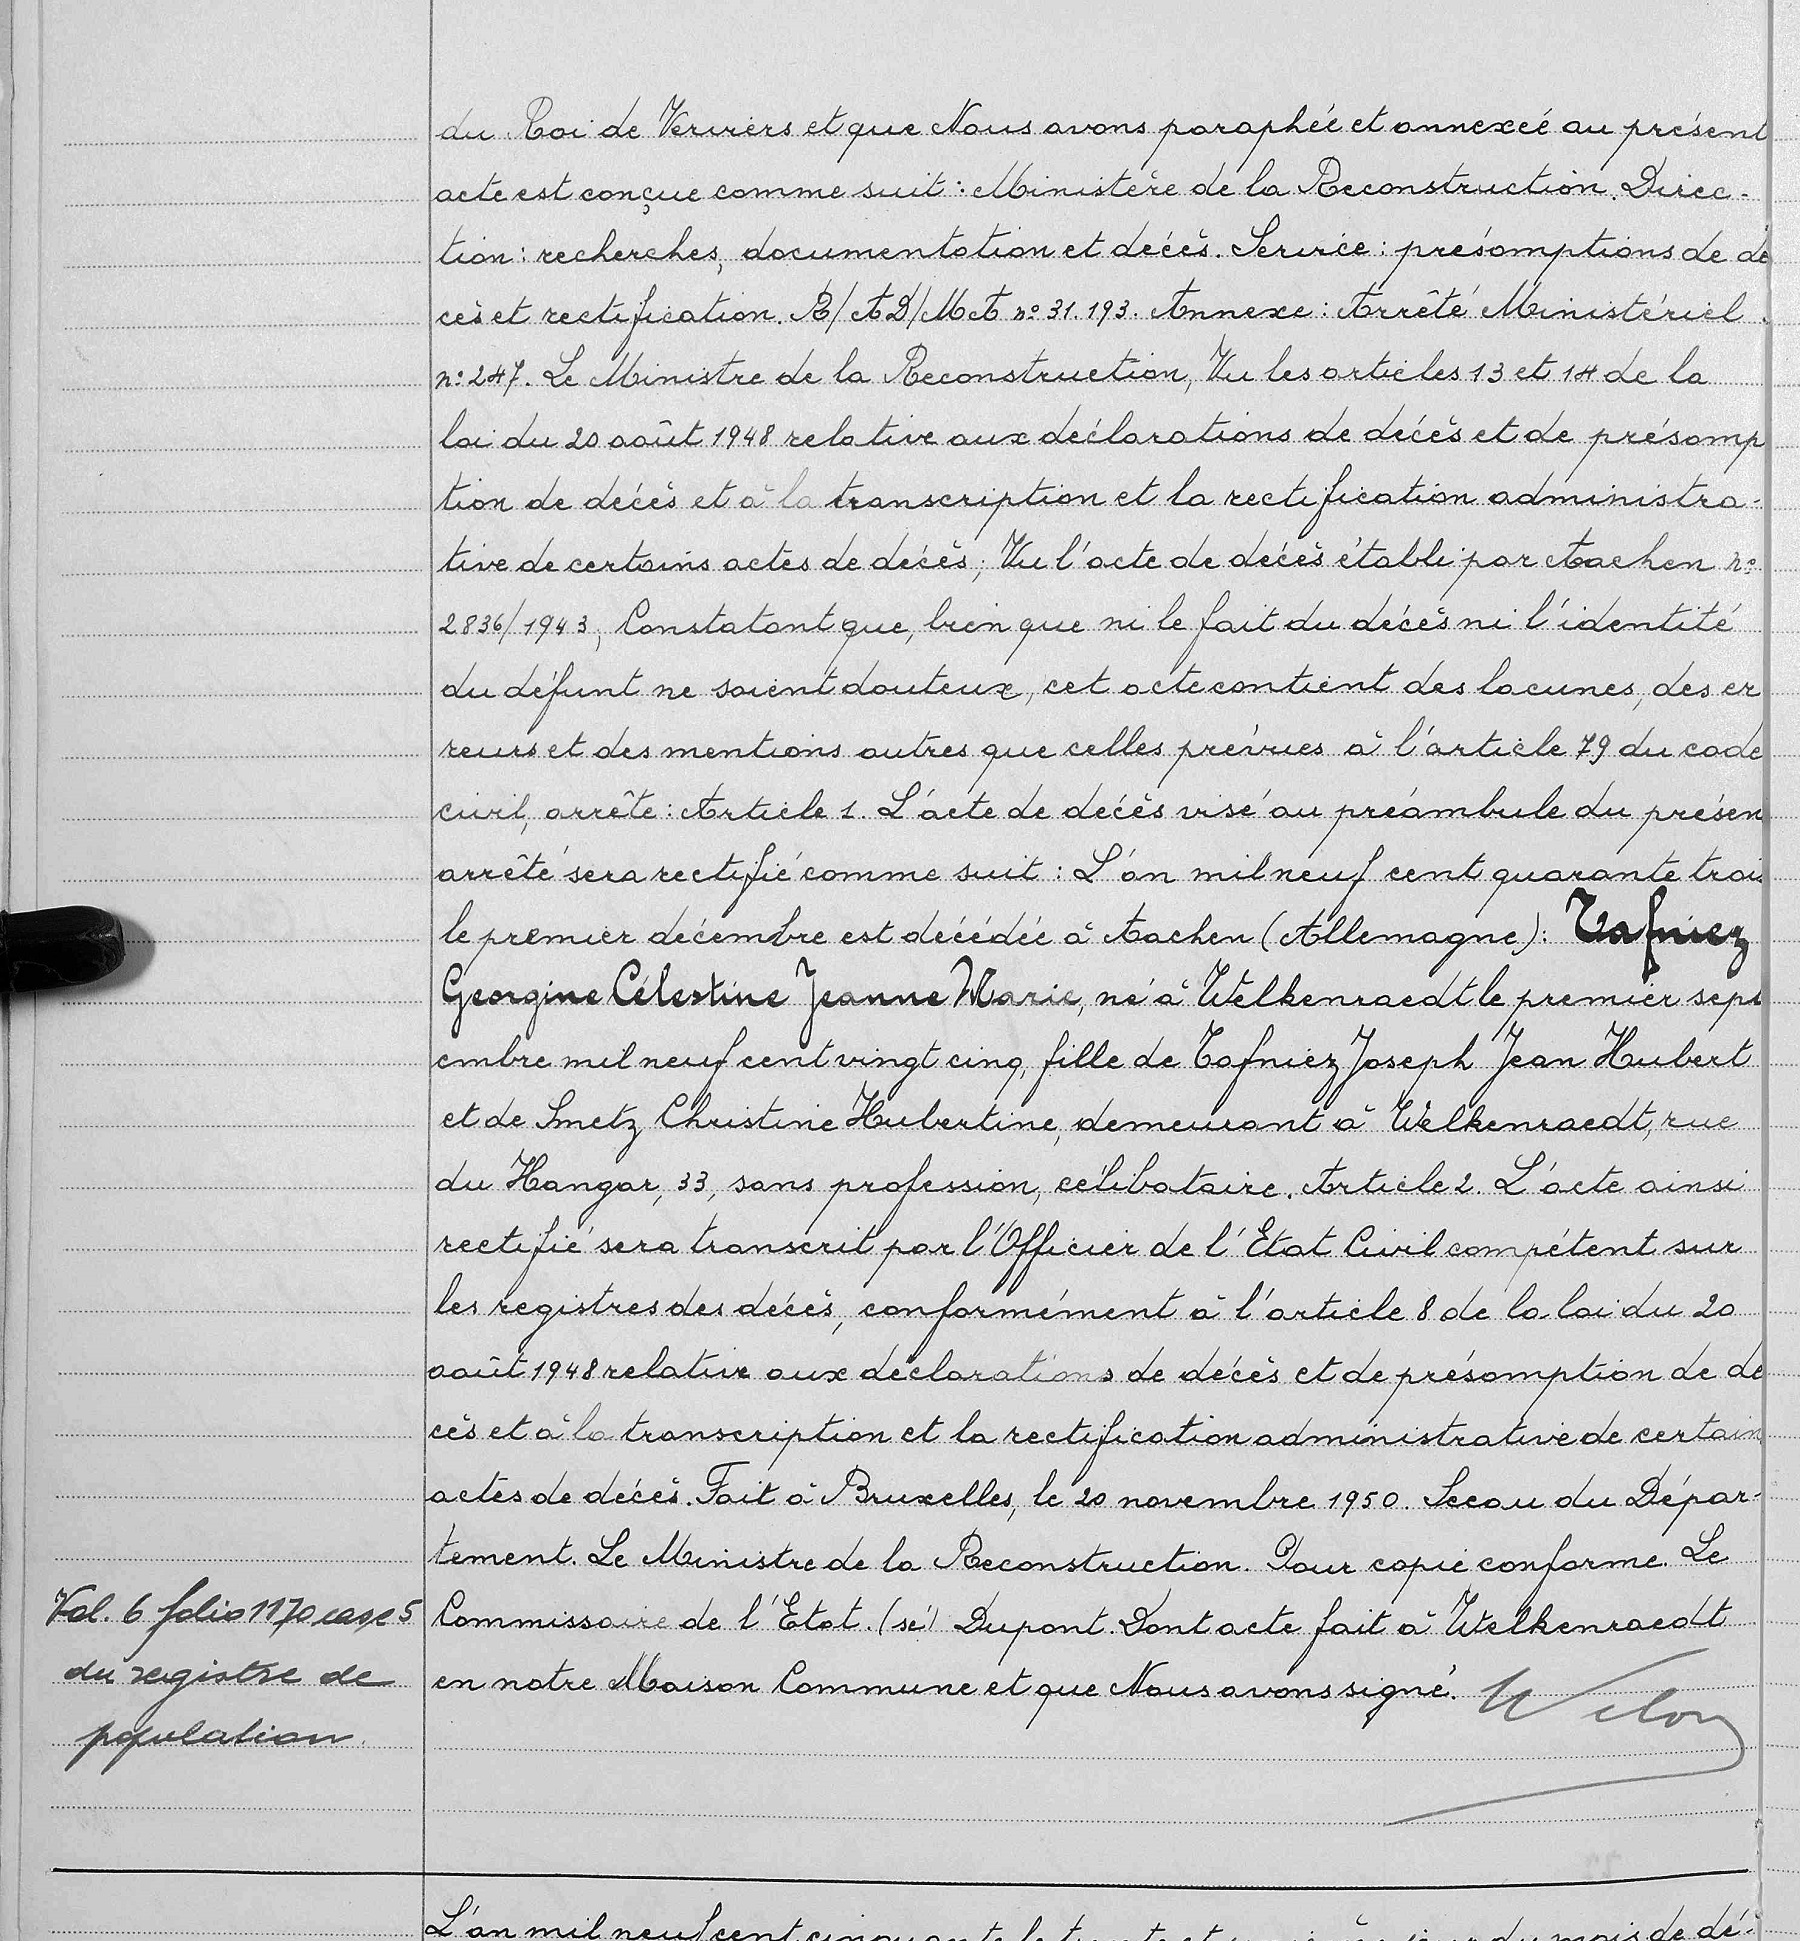 du Roi de Verviers et que Nous avons paraphée et annexée au présent
acte est conçue comme suit : Ministère de la Reconstruction. Direc-
tion : recherches, documentation et décès. Service : présomptions de dé
cès et rectification. R/AD/MA n° 31.193. Annexe : Arrêté Ministériel.
n° 247. Le Ministre de la Reconstruction, Vu les articles 13 et 14 de la
loi du 20 août 1948 relative aux déclarations de décès et de présomp
tion de décès et à la transcription et la rectification administra-
tive de certains actes de décès; Vu l'acte de décès établi par Aachen n°
2836/1943; Constatant que, bien que ni le fait du décès ni l'identité
du défunt ne soient douteux, cet acte contient des lacunes, des er
reurs et des mentions autres que celles prévues à l'article 79 du code
civil, arrête : Article 1. L'acte de décès visé au préambule du présen
arrêté sera rectifié comme suit : L'an mil neuf cent quarante trois
le premier décembre est décédée à Aachen (Allemagne) : Tafniez
Georgine Célestine Jeanne Marie, né à Welkenraedt le premier sept
embre mil neuf cent vingt cinq, fille de Tafniez Joseph Jean Hubert
et de Smetz Christine Hubertine, demeurant à Welkenraedt, rue
du Hangar, 33, sans profession, célibataire. Article 2. L'acte ainsi
rectifié sera transcrit par l'Officier de l'Etat Civil compétent sur
les registres des décès, conformément à l'article 8 de la loi du 20
août 1948 relative aux déclarations de décès et de présomption de dé
cès et à la transcription et la rectification administrative de certain
actes de décès. Fait à Bruxelles, le 20 novembre 1950. Sceau du Dépar-
tement. Le Ministre de la Reconstruction. Pour copie conforme. Le
Commissaire de l'Etat. (sé) Dupont. Dont acte fait à Welkenraedt
en notre Maison Commune et que Nous avons signé.
Vol. 6 folio 1170 case 5
du registre de
population.
L'an mil neuf cent cinquante le trente et unième jour du mois de dé-